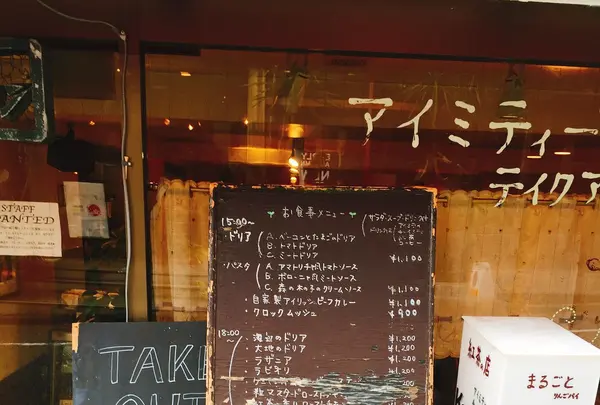 アイミティー
テイクア
STAFF
WANTED
お食事メニュー
サラダ・スープ・ドリンク付
15:00〜
・ドリア
A. ベーコンとたまごのドリア
B. トマトドリア
C. ミートドリア
¥1,100
・パスタ
A. アマトリチャーノトマトソース
B. ボローニャ風ミートソース
C. 森の木の子のクリームソース ¥1,100
・自家製アイリッシュビーフカレー ¥1,100
・クロックムッシュ ¥900
18:00〜
・海辺のドリア ¥1,200
・大地のドリア ¥1,200
・ラザニア ¥1,200
・ラビオリ ¥1,200
TAKE
OUT
紅茶の店
まるごと
りんごパイ